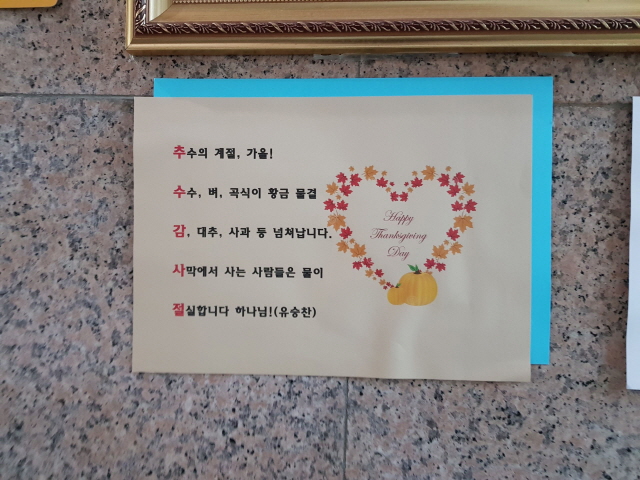 추수의 계절, 가을!
수수, 벼, 곡식이 황금 물결
감, 대추, 사과 등 넘쳐납니다.
사막에서 사는 사람들은 물이
절실합니다 하나님!(유승찬)
Happy
Thanksgiving
Day